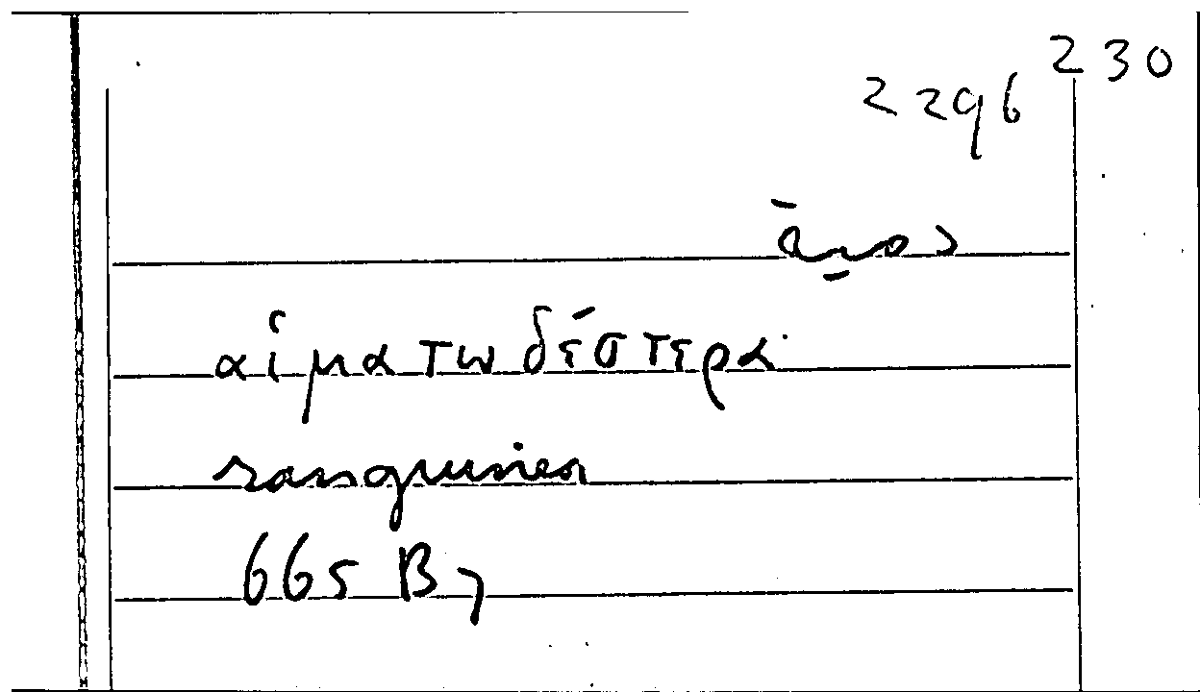 230
2296
αἱματωδέστερα
sanguinea
665 B 7